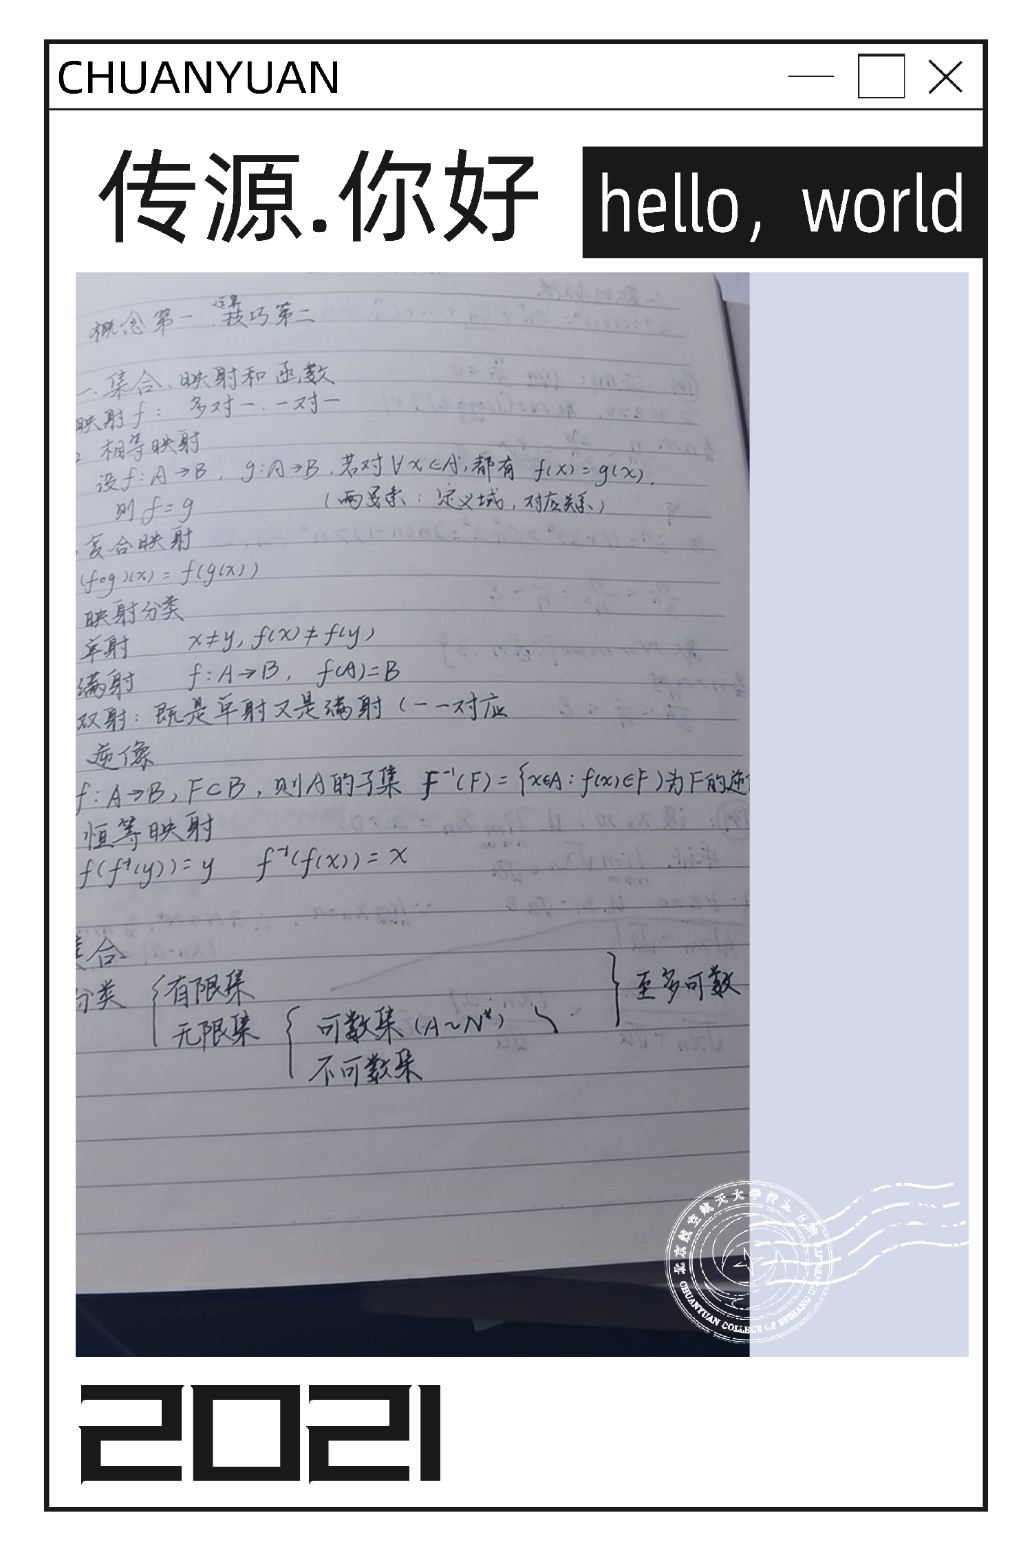 CHUANYUAN
传源.你好
hello，world
概念第一 运算技巧第二
一.集合、映射和函数
映射f： 多对一、一对一
相等映射
设f:A→B, g:A→B.若对∀x∈A,都有 f(x)=g(x).
则f=g （两要素：定义域，对应关系）
复合映射
(f∘g)(x)=f(g(x))
映射分类
单射 x≠y, f(x)≠f(y)
满射 f:A→B, f(A)=B
双射：既是单射又是满射（一一对应
逆像
f:A→B, F⊂B, 则A的子集 F⁻¹(F)={x∈A:f(x)∈F}为F的逆
恒等映射
f(f⁻¹(y))=y f⁻¹(f(x))=x
集合
分类 {有限集 } 至多可数
无限集 { 可数集(A~N*)
不可数集
北京航空航天大学传源书院
CHUANYUAN COLLEGE OF BEIHANG
2021